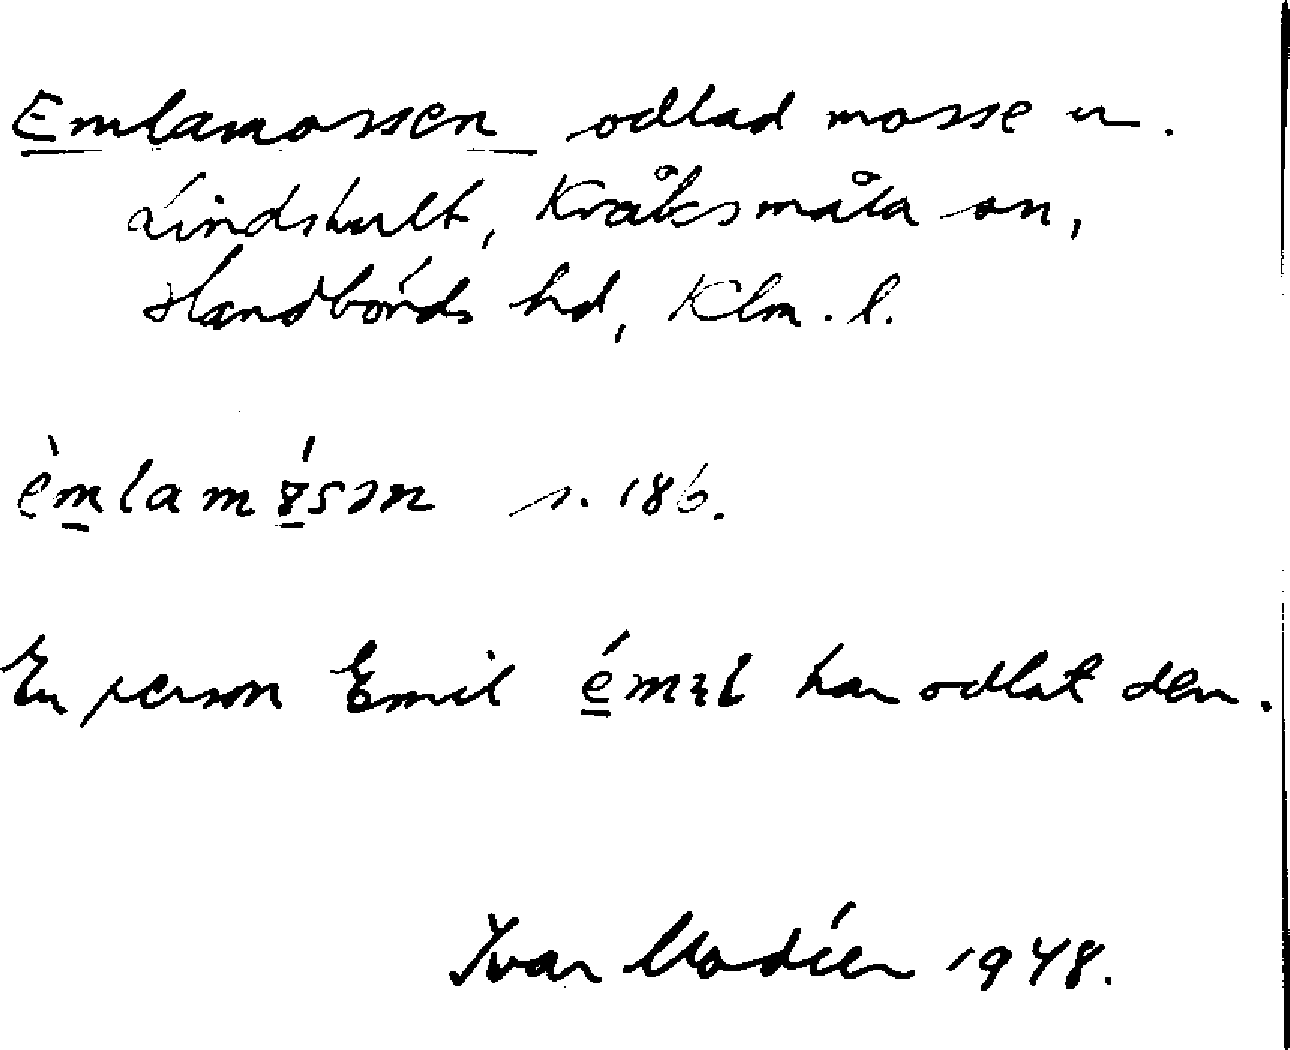 Emlamossen odlad mosse u.
Lindshult, Kråksmåla sn,
Handbörds hd, Klm. l.
èmlamósən s. 186.
En person Emil émɩl har odlat den.
Ivar Modéer 1948.